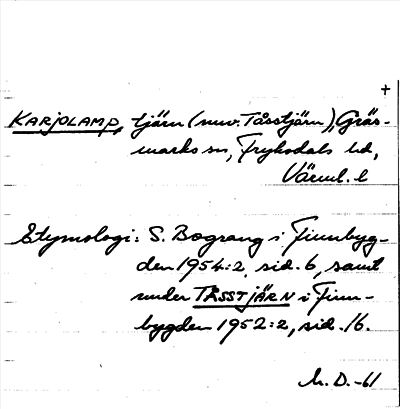 +
KARJOLAMP, tjärn (nuv. Tåsstjärn), Gräs-
marks sn, Fryksdals hd,
Värml. l
Etymologi: S. Bograng i Finnbyg-
den 1954:2, sid. 6, samt
under TÅSSTJÄRN i Finn-
bygden 1952:2, sid. 16.
M. D. -61